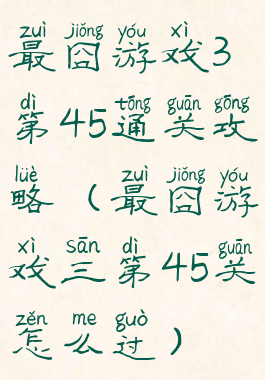 zuì jiǒng yóu xì
最囧游戏3
dì tōng guān gōng
第45通关攻
lüè zuì jiǒng yóu
略（最囧游
xì sān dì guān
戏三第45关
zěn me guò
怎么过）